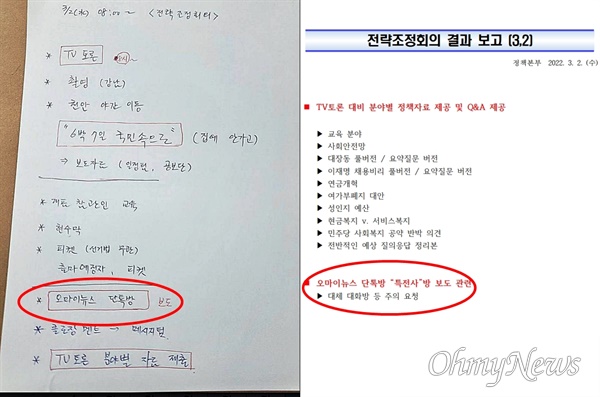 3/2(水) 08:00~ <전략조정회의>
* TV토론
* 촬영 (강남)
* 천안 야간 이동
"6박 7일 국민속으로" (집에 안가고)
⇒ 보도자료 (일정팀, 공보단)
* 개표 참고인 교육
* 현수막
* 피켓 (선거법 무관)
출마예정자, 피켓
* 오마이뉴스 단톡방 보도
* 클로징 멘트 → 메시지팀
* TV토론 분야별 자료 제출
전략조정회의 결과 보고 (3,2)
정책본부 2022. 3. 2. (수)
■ TV토론 대비 분야별 정책자료 제공 및 Q&A 제공
▶ 교육 분야
▶ 사회안전망
▶ 대장동 풀버전 / 요약질문 버전
▶ 이재명 채용비리 풀버전 / 요약질문 버전
▶ 연금개혁
▶ 여가부폐지 대안
▶ 성인지 예산
▶ 현금복지 v. 서비스복지
▶ 민주당 사회복지 공약 반박 의견
▶ 전반적인 예상 질의응답 정리본
■ 오마이뉴스 단톡방 "특전사"방 보도 관련
▶ 대체 대화방 등 주의 요청
OhmyNews